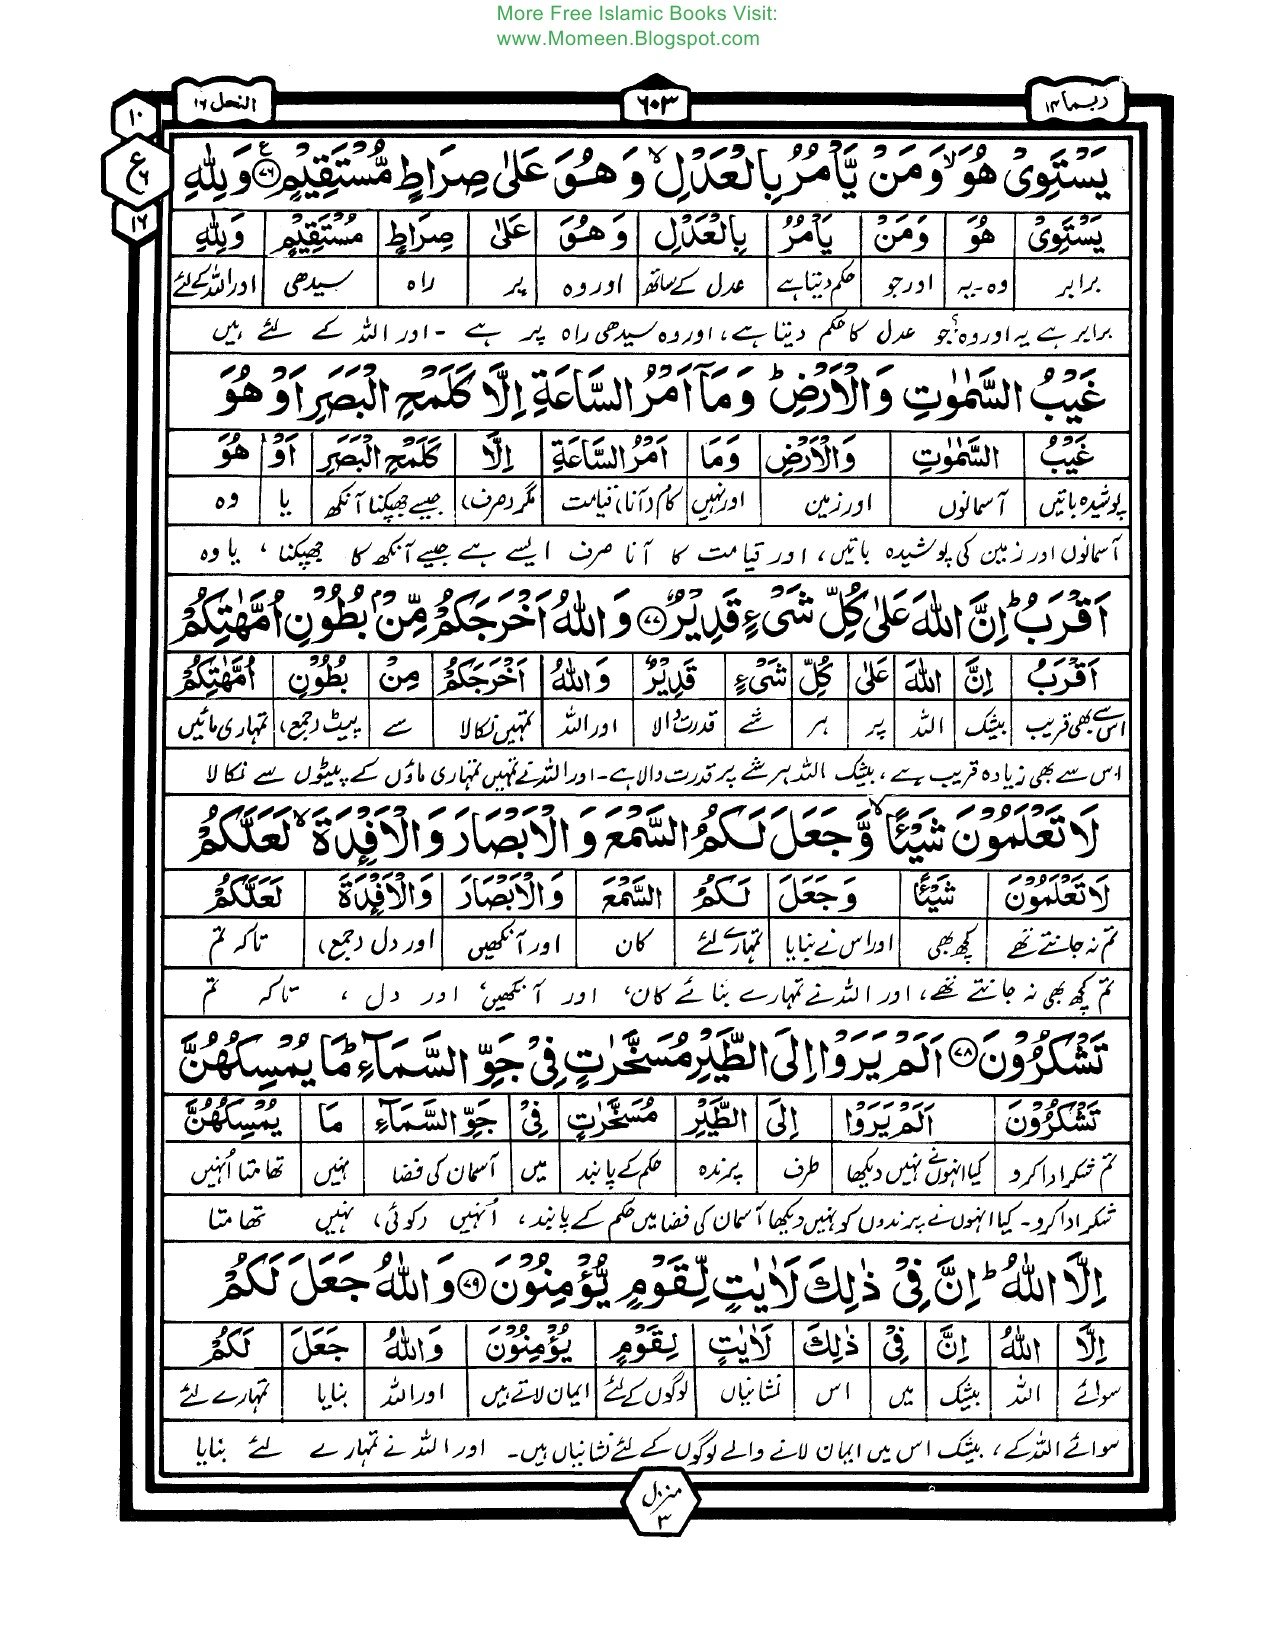 More Free Islamic Books Visit:
www.Momeen.Blogspot.com
ربما ۱۴
۶۰۳
النحل ۱۶
۱۰
ع
۶
۱۶
يَسْتَوِىْ هُوَ ۙ وَمَنْ يَّاْمُرُ بِالْعَدْلِ ۙ وَ هُوَ عَلٰى صِرَاطٍ مُّسْتَقِيْمٍ ۷۶ۧ وَلِلّٰهِ
يَسْتَوِىْ هُوَ وَمَنْ يَاْمُرُ بِالْعَدْلِ وَ هُوَ عَلٰى صِرَاطٍ مُسْتَقِيْمٍ وَلِلّٰهِ
برابر وہ-یہ اور جو حکم دیتا ہے عدل کے ساتھ اور وہ پر راہ سیدھی اور اللہ کے لئے
برابر ہے یہ اور وہ؟ جو عدل کا حکم دیتا ہے، اور وہ سیدھی راہ پر ہے - اور اللہ کے لئے ہیں
غَيْبُ السَّمٰوٰتِ وَالْاَرْضِ ؕ وَمَاۤ اَمْرُ السَّاعَةِ اِلَّا كَلَمْحِ الْبَصَرِ اَوْ هُوَ
غَيْبُ السَّمٰوٰتِ وَالْاَرْضِ وَمَا اَمْرُ السَّاعَةِ اِلَّا كَلَمْحِ الْبَصَرِ اَوْ هُوَ
پوشیدہ باتیں آسمانوں اور زمین اور نہیں کام (آنا) قیامت مگر (صرف) جیسے جھپکنا آنکھ یا وہ
آسمانوں اور زمین کی پوشیدہ باتیں، اور قیامت کا آنا صرف ایسے ہے جیسے آنکھ کا جھپکنا، یا وہ
اَقْرَبُ ؕ اِنَّ اللّٰهَ عَلٰى كُلِّ شَىْءٍ قَدِيْرٌ ۷۷ وَ اللّٰهُ اَخْرَجَكُمْ مِّنْۢ بُطُوْنِ اُمَّهٰتِكُمْ
اَقْرَبُ اِنَّ اللّٰهَ عَلٰى كُلِّ شَىْءٍ قَدِيْرٌ وَاللّٰهُ اَخْرَجَكُمْ مِنْ بُطُوْنِ اُمَّهٰتِكُمْ
اس سے بھی قریب بیشک اللہ پر ہر شے قدرت والا اور اللہ تمہیں نکالا سے پیٹ (جمع) تمہاری مائیں
اس سے بھی زیادہ قریب ہے، بیشک اللہ ہر شے پر قدرت والا ہے-اور اللہ نے تمہیں تمہاری ماؤں کے پیٹوں سے نکالا
لَا تَعْلَمُوْنَ شَيْئًا ۙ وَّ جَعَلَ لَـكُمُ السَّمْعَ وَ الْاَبْصَارَ وَالْاَفْـِٕدَةَ ۙ لَعَلَّكُمْ
لَا تَعْلَمُوْنَ شَيْئًا وَ جَعَلَ لَـكُمُ السَّمْعَ وَالْاَبْصَارَ وَالْاَفْـِٕدَةَ لَعَلَّكُمْ
تم نہ جانتے تھے کچھ بھی اور اس نے بنایا تمہارے لئے کان اور آنکھیں اور دل (جمع) تاکہ تم
تم کچھ بھی نہ جانتے تھے، اور اللہ نے تمہارے بنائے کان، اور آنکھیں، اور دل، تاکہ تم
تَشْكُرُوْنَ ۷۸ اَلَمْ يَرَوْا اِلَى الطَّيْرِ مُسَخَّرٰتٍ فِىْ جَوِّ السَّمَآءِ ؕ مَا يُمْسِكُهُنَّ
تَشْكُرُوْنَ اَلَمْ يَرَوْا اِلَى الطَّيْرِ مُسَخَّرٰتٍ فِىْ جَوِّ السَّمَآءِ مَا يُمْسِكُهُنَّ
تم شکر ادا کرو کیا انہوں نے نہیں دیکھا طرف پرندہ حکم کے پابند میں آسمان کی فضا نہیں تھامتا اُنہیں
شکر ادا کرو-کیا انہوں نے پرندوں کو نہیں دیکھا آسمان کی فضا میں حکم کے پابند، اُنہیں (کوئی) نہیں تھامتا
اِلَّا اللّٰهُ ؕ اِنَّ فِىْ ذٰلِكَ لَاٰيٰتٍ لِّقَوْمٍ يُّؤْمِنُوْنَ ۷۹ وَ اللّٰهُ جَعَلَ لَكُمْ
اِلَّا اللّٰهُ اِنَّ فِىْ ذٰلِكَ لَاٰيٰتٍ لِقَوْمٍ يُؤْمِنُوْنَ وَاللّٰهُ جَعَلَ لَكُمْ
سوائے اللہ بیشک میں اس نشانیاں لوگوں کے لئے ایمان لاتے ہیں اور اللہ بنایا تمہارے لئے
سوائے اللہ کے، بیشک اس میں ایمان لانے والے لوگوں کے لئے نشانیاں ہیں- اور اللہ نے تمہارے لئے بنایا
منزل
۳